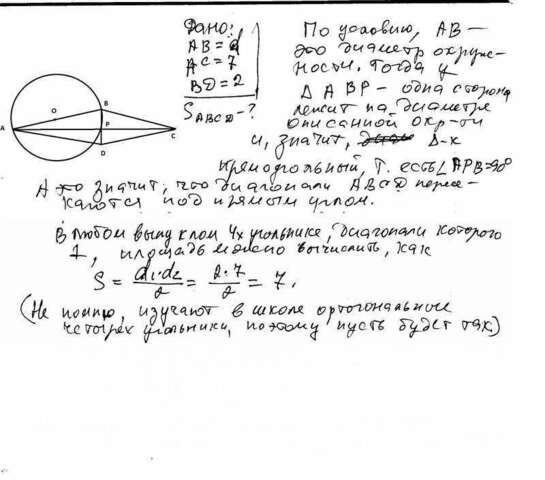 Дано:
AB = d
AC = 7
BD = 2
S ABCD - ?
По условию, AB —
это диаметр окруж-
ности. Тогда у
Δ ABP – одна сторона
лежит на диаметре
описанной окр-ти
и, значит, Δ-к
прямоугольный, т. есть ∠APB=90°
А это значит, что диагонали ABCD пересе-
каются под прямым углом.
В любом выпуклом 4х угольнике, диагонали которого
⊥, площадь можно вычислить, как
S = d1·d2/2 = 2·7/2 = 7.
(Не помню, изучают в школе ортогональные
четырехугольники, поэтому пусть будет так.)
O
B
A
P
C
D